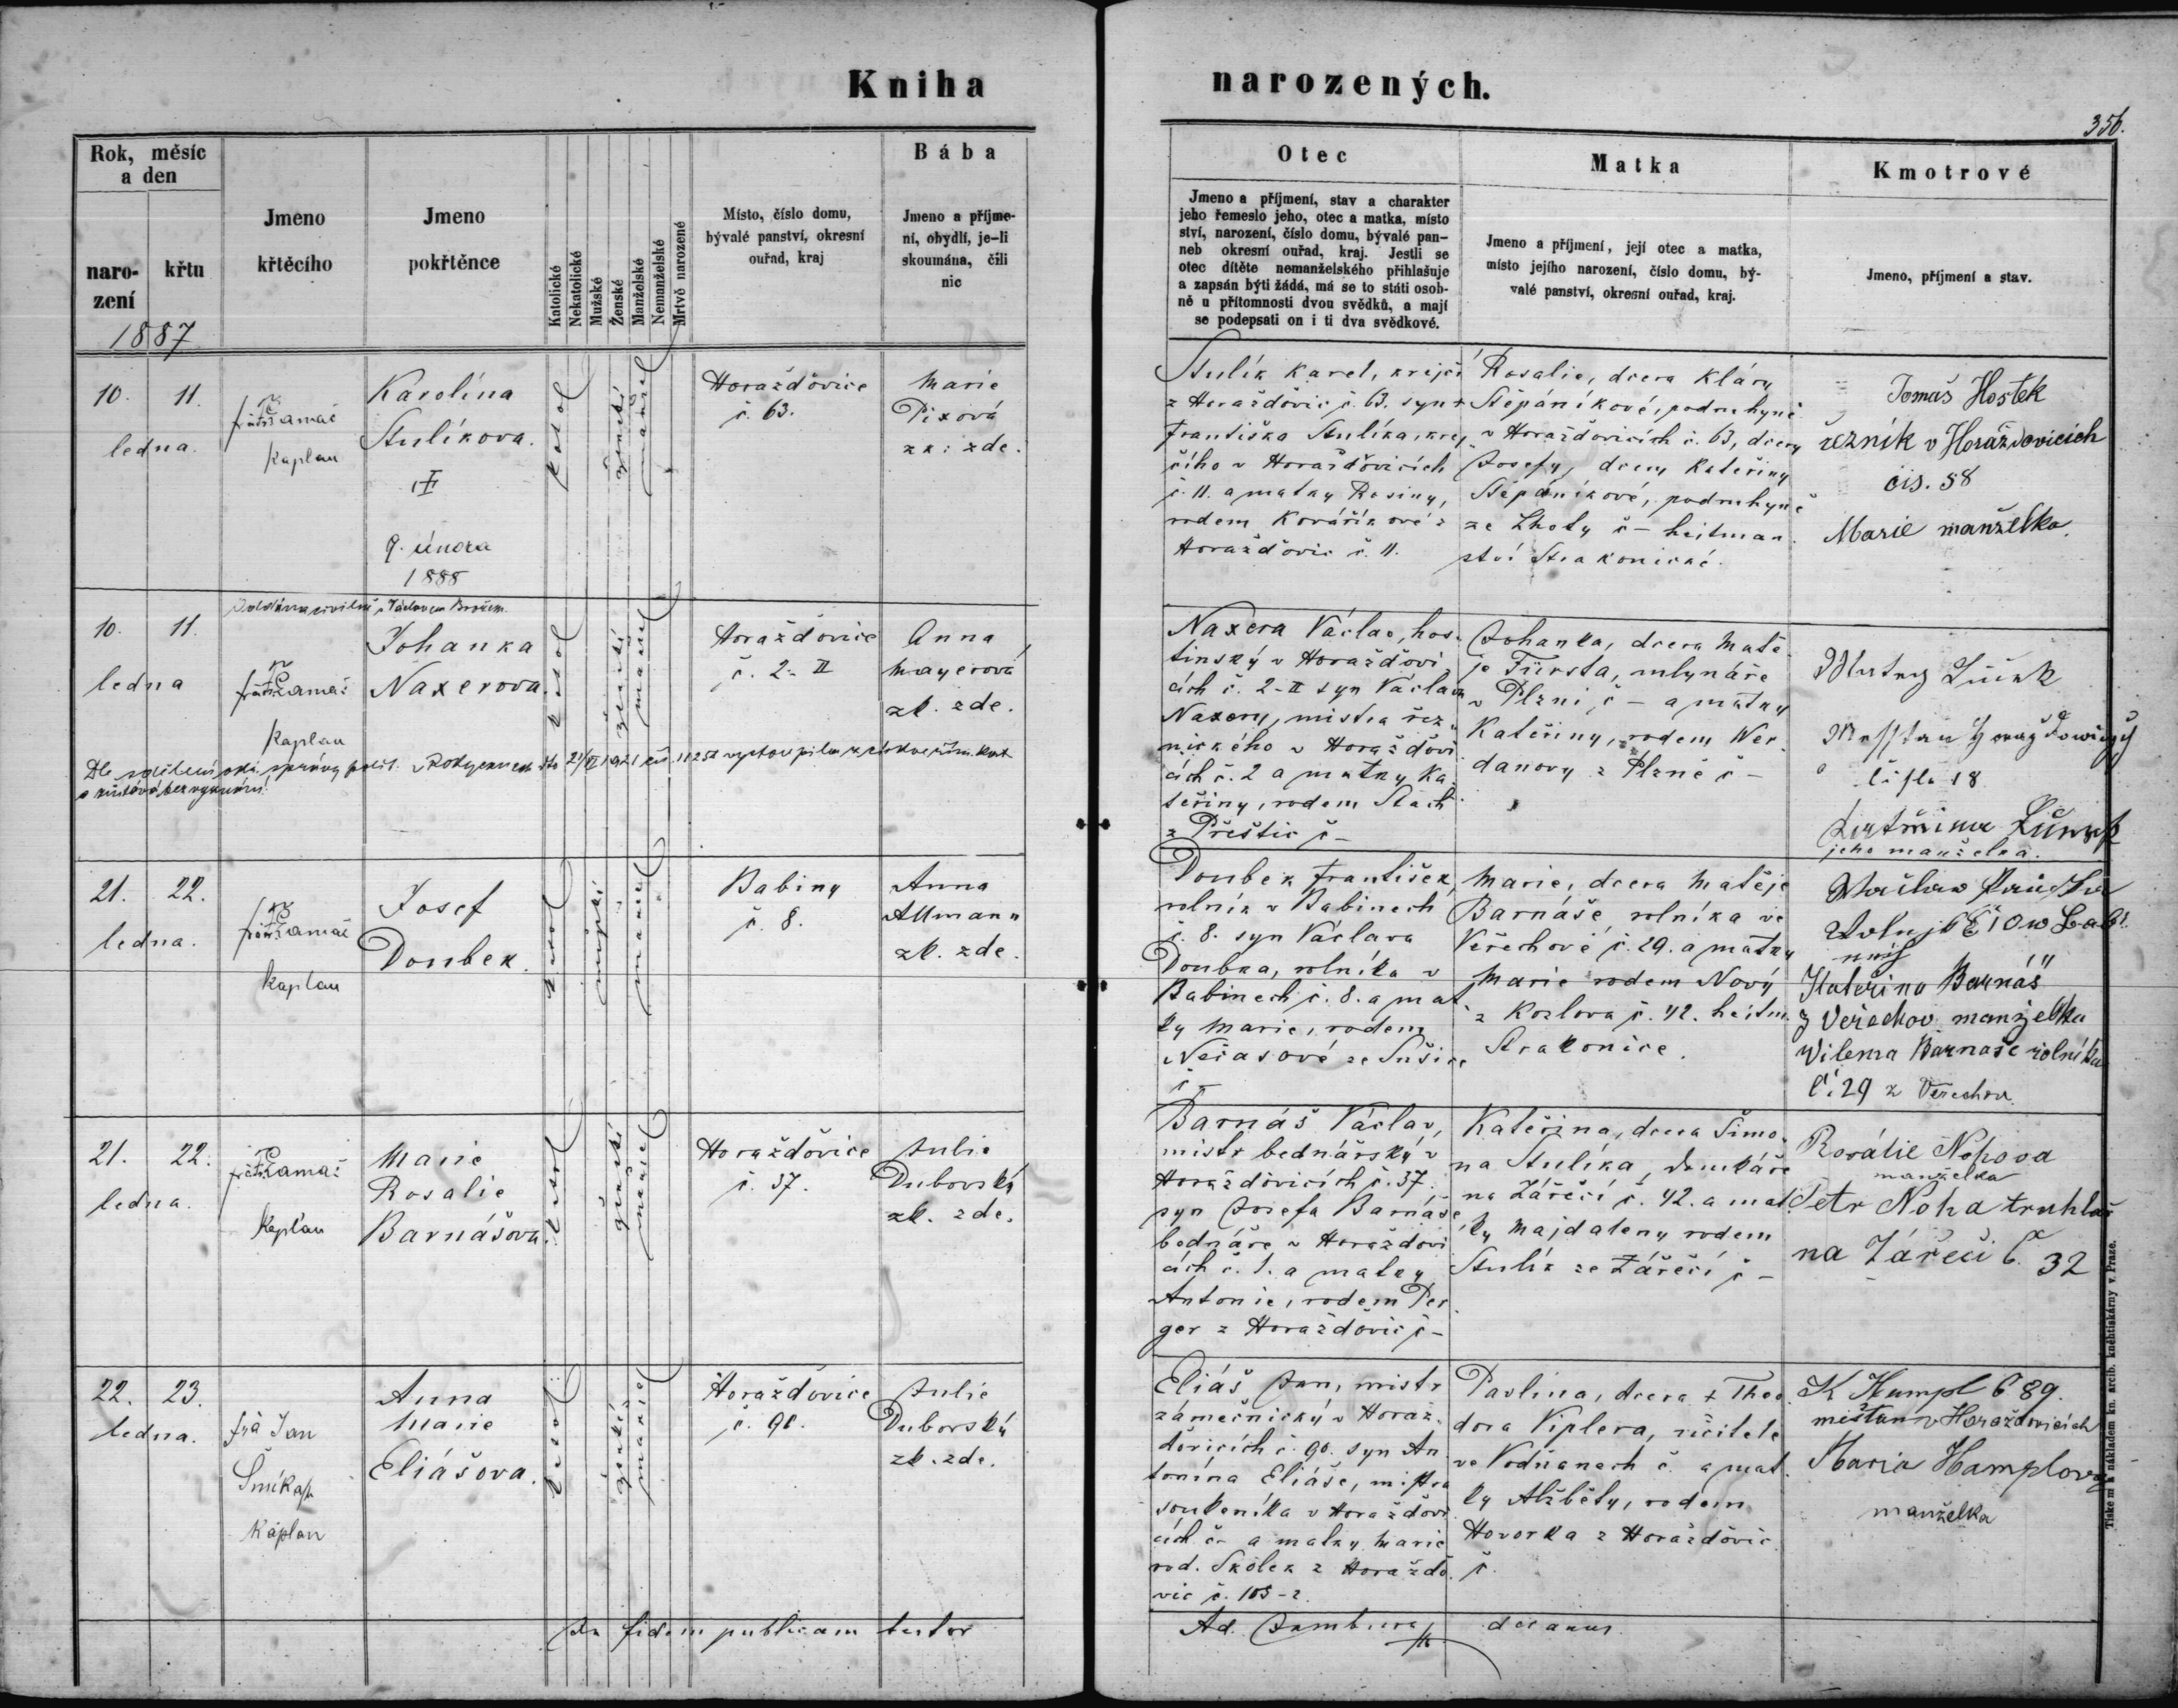 Kniha
narozených.
356.
Rok, měsíc
a den
naro-
zení
křtu
1887
Jmeno
křtěcího
Jmeno
pokřtěnce
Katolické
Nekatolické
Mužské
Ženské
Manželské
Nemanželské
Mrtvě narozené
Místo, číslo domu,
bývalé panství, okresní
ouřad, kraj
Bába
Jmeno a příjme-
ní, obydlí, je-li
skoumána, čili
nic
Otec
Jmeno a příjmení, stav a charakter
jeho řemeslo jeho, otec a matka, místo
ství, narození, číslo domu, bývalé pan-
neb okresní ouřad, kraj. Jestli se
otec dítěte nemanželského přihlašuje
a zapsán býti žádá, má se to státi osob-
ně u přítomnosti dvou svědků, a mají
se podepsati on i ti dva svědkové.
Matka
Jmeno a příjmení, její otec a matka,
místo jejího narození, číslo domu, bý-
valé panství, okresní ouřad, kraj.
Kmotrové
Jmeno, příjmení a stav.
10. 11.
ledna.
Kaplan
Karolína
Stulíkova.
9. února
1888
katol
ženské
manžel
Horažďovice
č. 63.
Marie
Pixová
zk: zde.
Stulík Karel, krejčí
z Horažďovic č. 63. syn +
Františka Stulíka, krej
čího v Horažďovicích
č. 11. a matky Rosiny,
rodem Kováříkové z
Horažďovic č. 11.
Rosalie, dcera Kláry
Štěpáníkové, podruhyně
v Horažďovicích č. 63, dcery
Josefy, dcery Kateřiny
Štěpáníkové, podruhyně
ze Lhoty č – heitman
ství Strakonické.
Tomáš Hostek
řezník v Horažďovicích
čis. 58
Marie manželka.
Oddána civilně s Václavem Brožem.
10. 11.
ledna
Kaplan
Johanka
Naxerova.
katol
ženské
manžel
Horažďovice
č. 2-II
Anna
Mayerová
zk. zde.
Naxera Václav, hos-
tinský v Horažďovi
cích č. 2-II syn Václava
Naxery, mistra řez
nického v Horažďovi
cích č. 2 a matky Ka
teřiny, rodem Stach
z Přeštic č –
Johanka, dcera Matě
je Fürsta, mlynáře
v Plzni č – a matky
Kateřiny, rodem Wer
danovy z Plzně č –
čislo 18
jeho manželka.
Dle sdělení okr. správy polit. v Rokycanech
21. 22.
ledna.
Kaplan
Josef
Doubek.
katol
mužské
manžel
Babiny
č. 8.
Anna
Allmann
zk. zde.
Doubek František,
rolník v Babinech
č. 8. syn Václava
Doubka, rolníka v
Babinech č. 8. a mat
ky Marie, rodem
Nečasové ze Sušice
č –
Marie, dcera Matěje
Barnáše, rolníka ve
Veřechově č. 29. a matky
Marie rodem Nový
z Kozlova č. 42. heitm.
Strakonice.
Kateřina Barnáš
z Veřechov manželka
Wilema Barnaše rolníka
č: 29 z Veřechova
21. 22.
ledna.
Kaplan
Marie
Rosalie
Barnášova.
katol
ženské
manžel
Horažďovice
č. 37.
Julie
Duborský
zk. zde.
Barnáš Václav,
mistr bednářský v
Horažďovicích č. 37.
syn Josefa Barnáše
bednáře v Horažďovi
cích č. 1. a matky
Antonie, rodem Per
ger z Horažďovic č –
Kateřina, dcera Šimo
na Stulíka, domkáře
na Zářečí č. 42. a mat
ky Majdaleny rodem
Stulík ze Zářečí č –
Rosálie Nohova
manželka
Petr Noha truhlař
na Zářečí č. 32
22. 23.
ledna.
Jan
Kaplan
Anna
Marie
Eliášova.
katol
ženské
manžel
Horažďovice
č. 90.
Julie
Duborský
zk. zde.
Eliáš Jan, mistr
zámečnický v Horaž-
ďovicích č. 90. syn An
tonína Eliáše, mistra
soukeníka v Horažďovi
cích č – a matky Marie
rod. Skolek z Horaždo
vic č. 105-2.
Pavlina, dcera + Theo
dora Viplera, učitele
ve Vodňanech č. a mat
ky Alžběty, rodem
Hovorka z Horažďovic
č.
K Hampl č 89.
měšťan v Horažďovicích
Maria Hamplova
manželka
In fidem publicam testor
Ad. Jambura
decanus.
Tiskem a nákladem kn. arcib. kněhtiskárny v Praze.